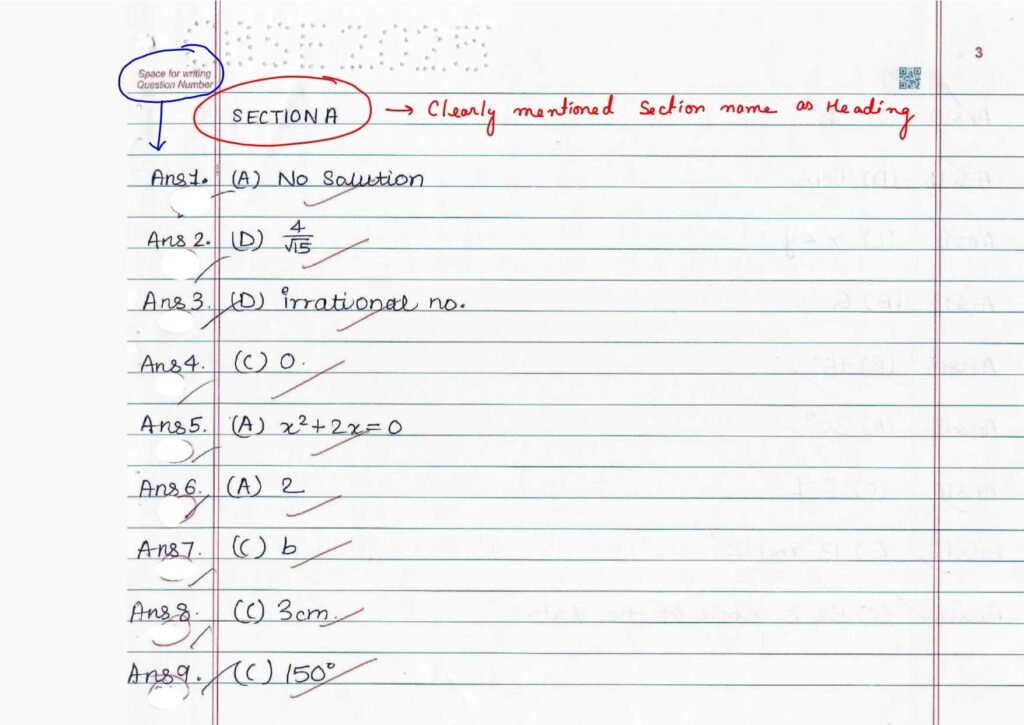 CBSE 2025
3
Space for writing
Question Number
SECTION A → Clearly mentioned Section name as Heading
Ans 1. (A) No Solution
Ans 2. (D) 4/√15
Ans 3. (D) irrational no.
Ans 4. (C) 0.
Ans 5. (A) x²+2x=0
Ans 6. (A) 2
Ans 7. (C) b
Ans 8. (C) 3cm.
Ans 9. (C) 150°